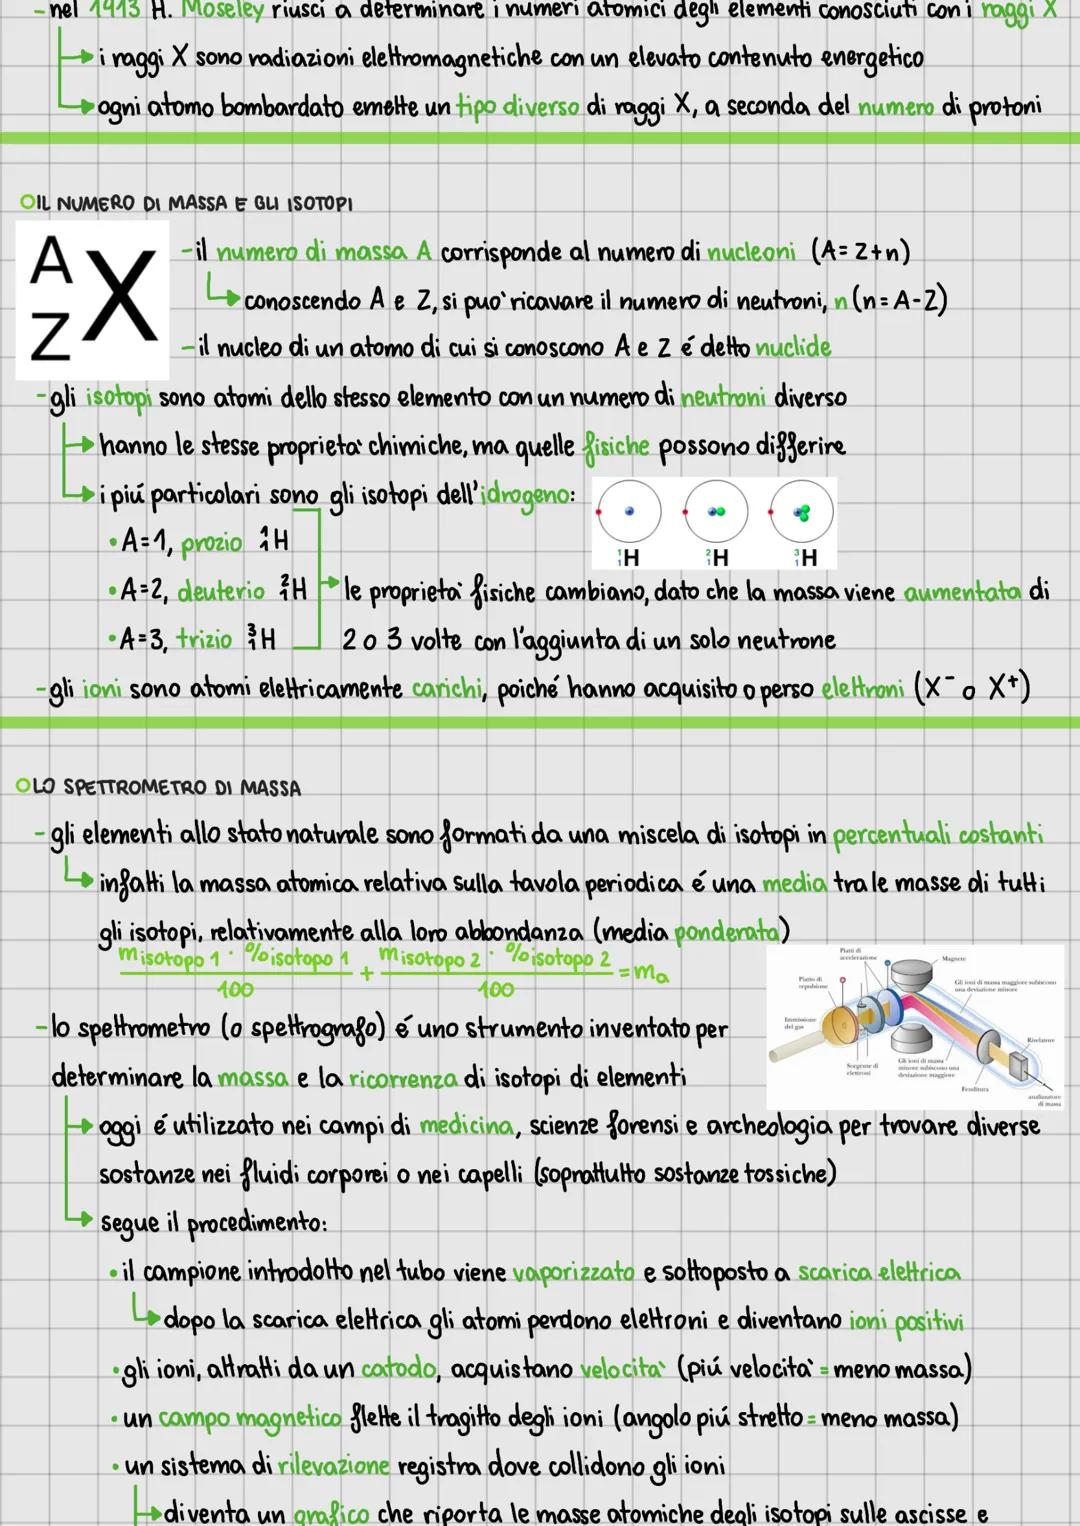 -nel 1913 H. Moseley riuscì a determinare i numeri atomici degli elementi conosciuti con i raggi X
i raggi X sono radiazioni elettromagnetiche con un elevato contenuto energetico
ogni atomo bombardato emette un tipo diverso di raggi X, a seconda del numero di protoni
IL NUMERO DI MASSA E GLI ISOTOPI
A
Z X
-il numero di massa A corrisponde al numero di nucleoni (A=Z+n)
conoscendo A e Z, si puo' ricavare il numero di neutroni, n (n=A-Z)
-il nucleo di un atomo di cui si conoscono A e Z é detto nuclide
-gli isotopi sono atomi dello stesso elemento con un numero di neutroni diverso
hanno le stesse proprieta' chimiche, ma quelle fisiche possono differire
i piú particolari sono gli isotopi dell'idrogeno:
¹₁H ²₁H ³₁H
•A=1, prozio ¹₁H
•A=2, deuterio ²₁H
•A=3, trizio ³₁H
le proprieta' fisiche cambiano, dato che la massa viene aumentata di
2 o 3 volte con l'aggiunta di un solo neutrone
-gli ioni sono atomi elettricamente carichi, poiché hanno acquisito o perso elettroni (X⁻ o X⁺)
LO SPETTROMETRO DI MASSA
-gli elementi allo stato naturale sono formati da una miscela di isotopi in percentuali costanti
infatti la massa atomica relativa sulla tavola periodica é una media tra le masse di tutti
gli isotopi, relativamente alla loro abbondanza (media ponderata)
m isotopo 1 · % isotopo 1 / 100 + m isotopo 2 · % isotopo 2 / 100 = ma
Piatti di
accelerazione
Magnete
Piatto di
repulsione
Gli ioni di massa maggiore subiscono
una deviazione minore
Immissione
del gas
Rivelatore
Sorgente di
elettroni
Gli ioni di massa
minore subiscono una
deviazione maggiore
Fenditura
analizzatore
di massa
-lo spettrometro (o spettrografo) é uno strumento inventato per
determinare la massa e la ricorrenza di isotopi di elementi
oggi é utilizzato nei campi di medicina, scienze forensi e archeologia per trovare diverse
sostanze nei fluidi corporei o nei capelli (soprattutto sostanze tossiche)
segue il procedimento:
•il campione introdotto nel tubo viene vaporizzato e sottoposto a scarica elettrica
dopo la scarica elettrica gli atomi perdono elettroni e diventano ioni positivi
•gli ioni, attratti da un catodo, acquistano velocita' (piú velocita' = meno massa)
•un campo magnetico flette il tragitto degli ioni (angolo piú stretto = meno massa)
•un sistema di rilevazione registra dove collidono gli ioni
diventa un grafico che riporta le masse atomiche degli isotopi sulle ascisse e